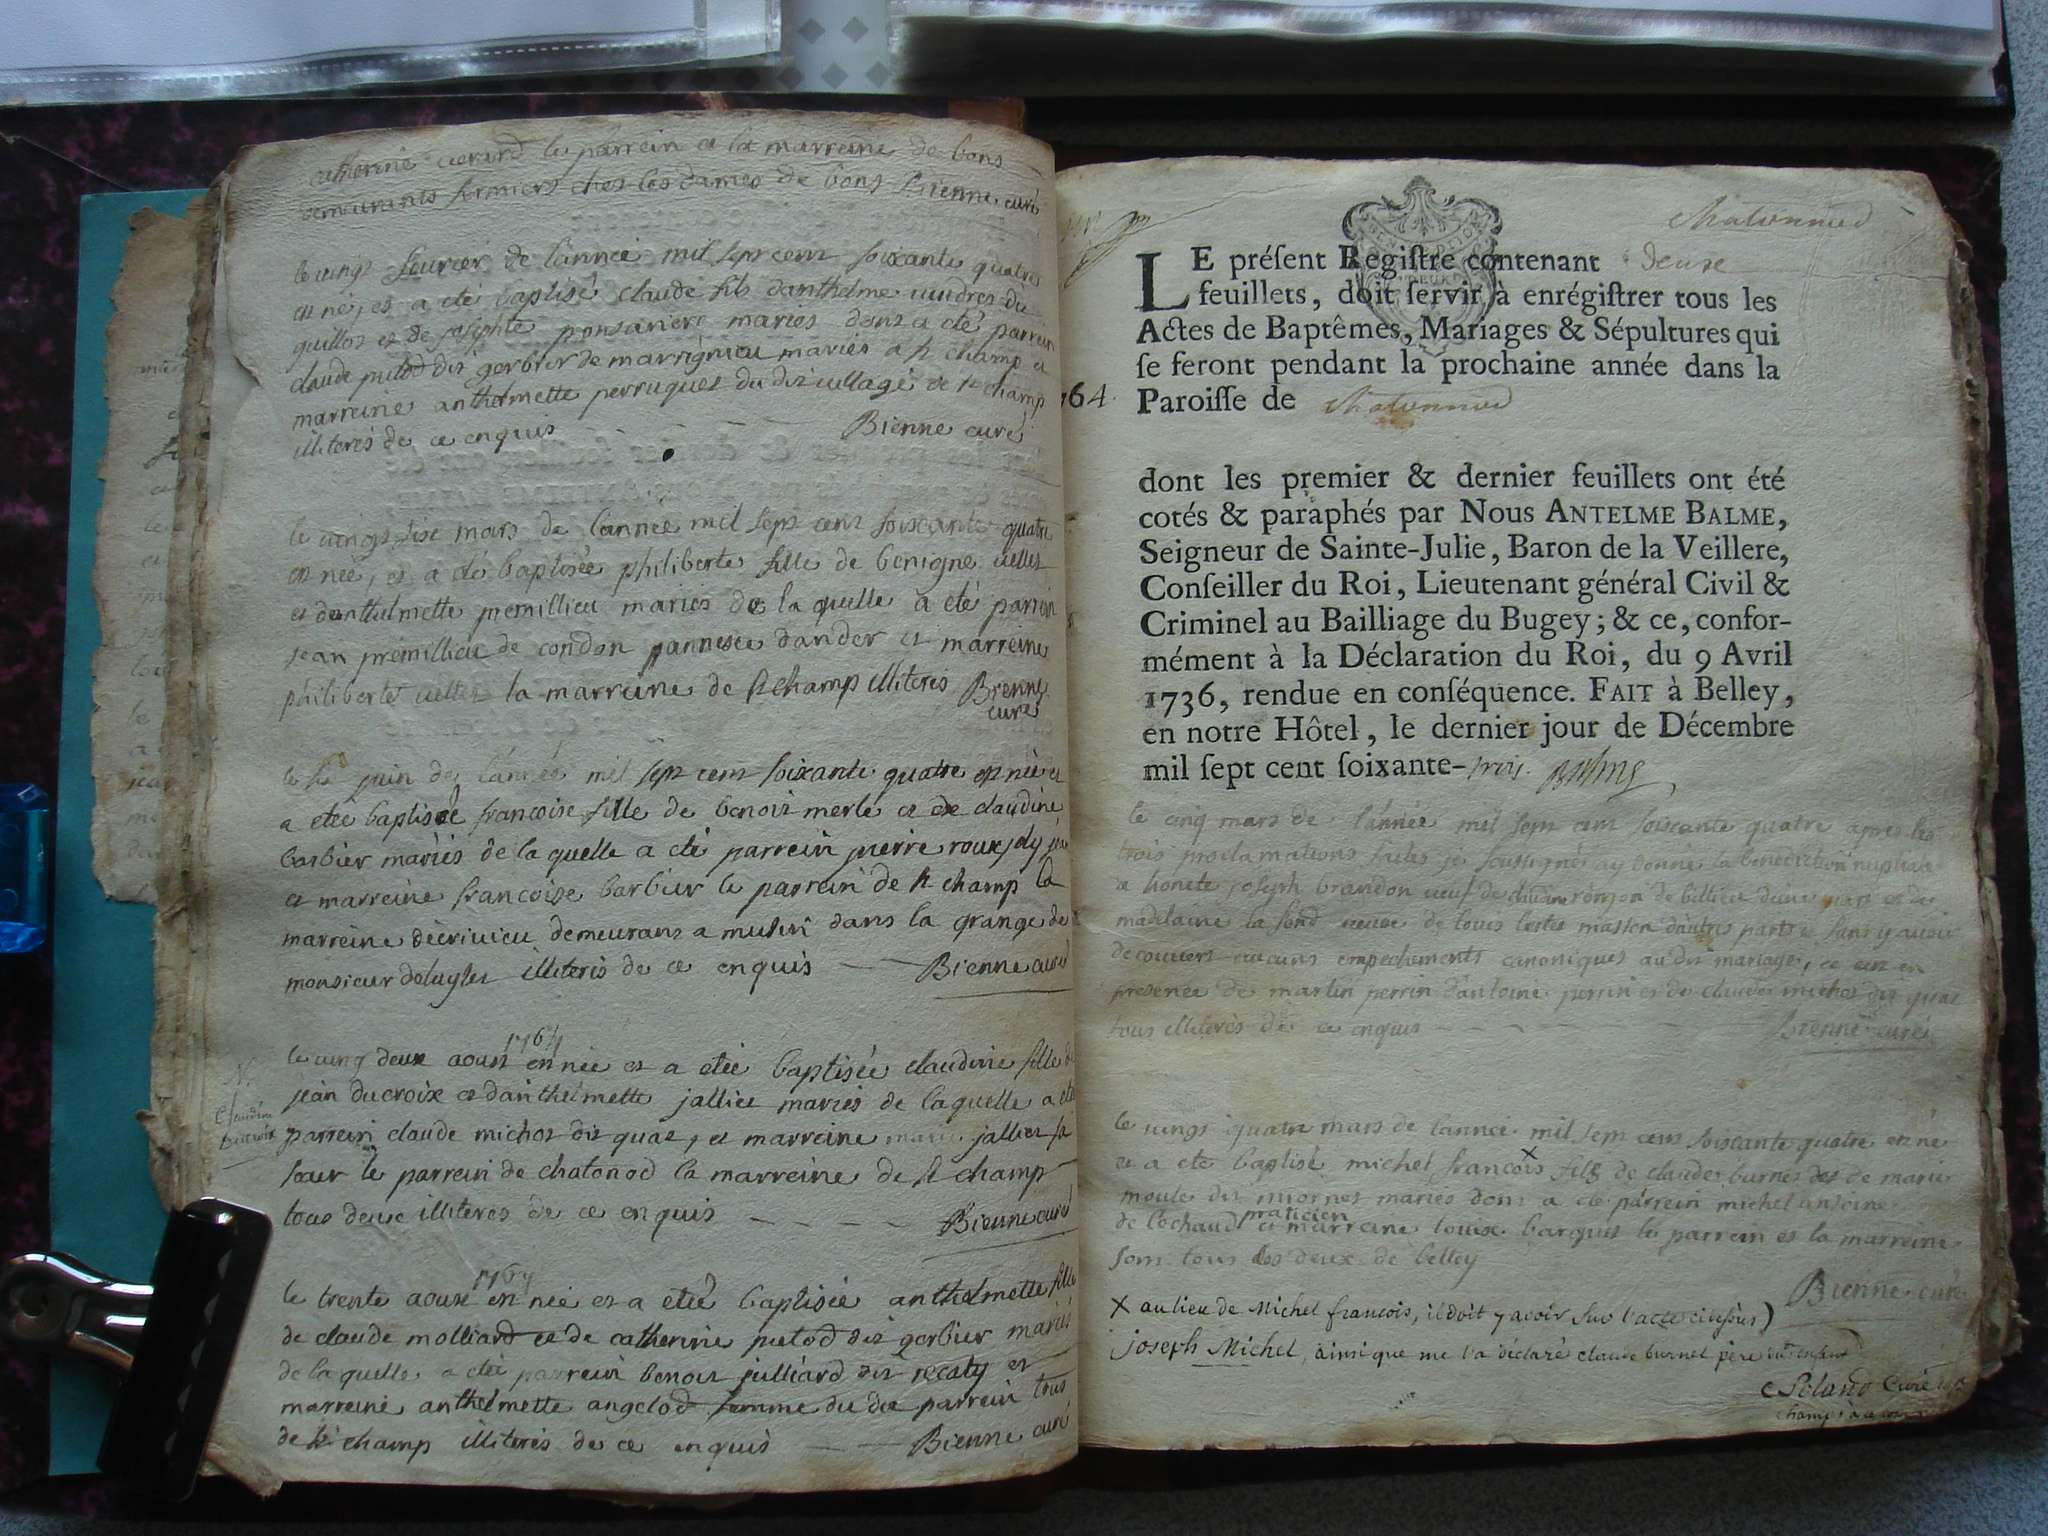 catherine le parrein et la marreine de bons
demeurants fermiers ches les dames de bons Bienne curé
le vingt fevrier de l'année mil sept cent soixante quatre
est né, et a eté baptisé claude fils danthelme du
guillot et de josephte mariés dont a eté parrein
claude putod dit gerbier de marrignieu mariés a st champ et
marreine anthelmette perruquet du dit village de st champ
illiterés de ce enquis - - - - Bienne curé
le vingt sise mars de l'année mil sept cent soixante quatre
est née, et a eté baptisée philiberte fille de benigne vellet
et danthelmette premillieu mariés de la quelle a eté parrein
jean premillieu de condon dander et marreine
philiberte vellet la marreine de st champ illiterés Bienne
curé
le juin de l'année mil sept cent soixante quatre est née et
a etée baptisée francoise fille de benoit merle et de claudine
barbier mariés de la quelle a eté parrein pierre roux
et marreine francoise barbier le parrein de st champ la
marreine decrivieu demeurant a musin dans la grange de
monsieur illiterés de ce enquis — — Bienne curé
1764
le vingt deux aoust est née et a etée baptisée claudine fille de
jean ducroix et danthelmette jallier mariés de laquelle a eté
N.
Claudine
Ducroix
parrein claude michot dit quaz, et marreine marie jallier sa
sœur le parrein de chatonod la marreine de st champ
tous deux illiterés de ce enquis - - - - Bienne curé
1764
le trente aoust est née et a etée baptisée anthelmette fille
de claude molliard et de catherine putod dit gerbier mariés
de la quelle a eté parrein benoit julliard dit et
marreine anthelmette angelod femme du dit parrein tous
de st champ illiterés de ce enquis — — Bienne curé
Chatonnod
LE préſent Regiſtre contenant deuxe
feuillets, doit ſervir à enrégiſtrer tous les
Actes de Baptêmes, Mariages & Sépultures qui
ſe feront pendant la prochaine année dans la
1764. Paroiſſe de Chatonnod
dont les premier & dernier feuillets ont été
cotés & paraphés par Nous ANTELME BALME,
Seigneur de Sainte-Julie, Baron de la Veillere,
Conſeiller du Roi, Lieutenant général Civil &
Criminel au Bailliage du Bugey; & ce, confor-
mément à la Déclaration du Roi, du 9 Avril
1736, rendue en conſéquence. FAIT à Belley,
en notre Hôtel, le dernier jour de Décembre
mil ſept cent ſoixante-trois. Balme
le cinq mars de l'année mil sept cent soixante quatre apres les
trois proclamations faites je soussigné ay donné la benediction nuptiale
a honete joseph brandon veuf de claudine de billieu dune part et de
madelaine la fond veuve de louis masson dautre part et sans y avoir
decouvert aucuns empechements canoniques au dit mariage, ce est en
presence de martin perrin dantoine perrin et de claude michot dit quaz
tous illiterés de ce enquis - - - - Bienne curé
le vingt quatre mars de l'année mil sept cent soixante quatre est né
et a eté baptisé michel francois X fils de claude burnet et de marie
moule dit miornet mariés dont a eté parrein michel antoine
de lechaud praticien et marreine louise barquet le parrein et la marreine
sont tous les deux de belley
Bienne curé
X au lieu de Michel francois, il doit y avoir sur l'acte cidessus)
joseph Michel, ainsi que me l'a déclaré claude burnet père dud. enfant
Poland Curé de st
champ